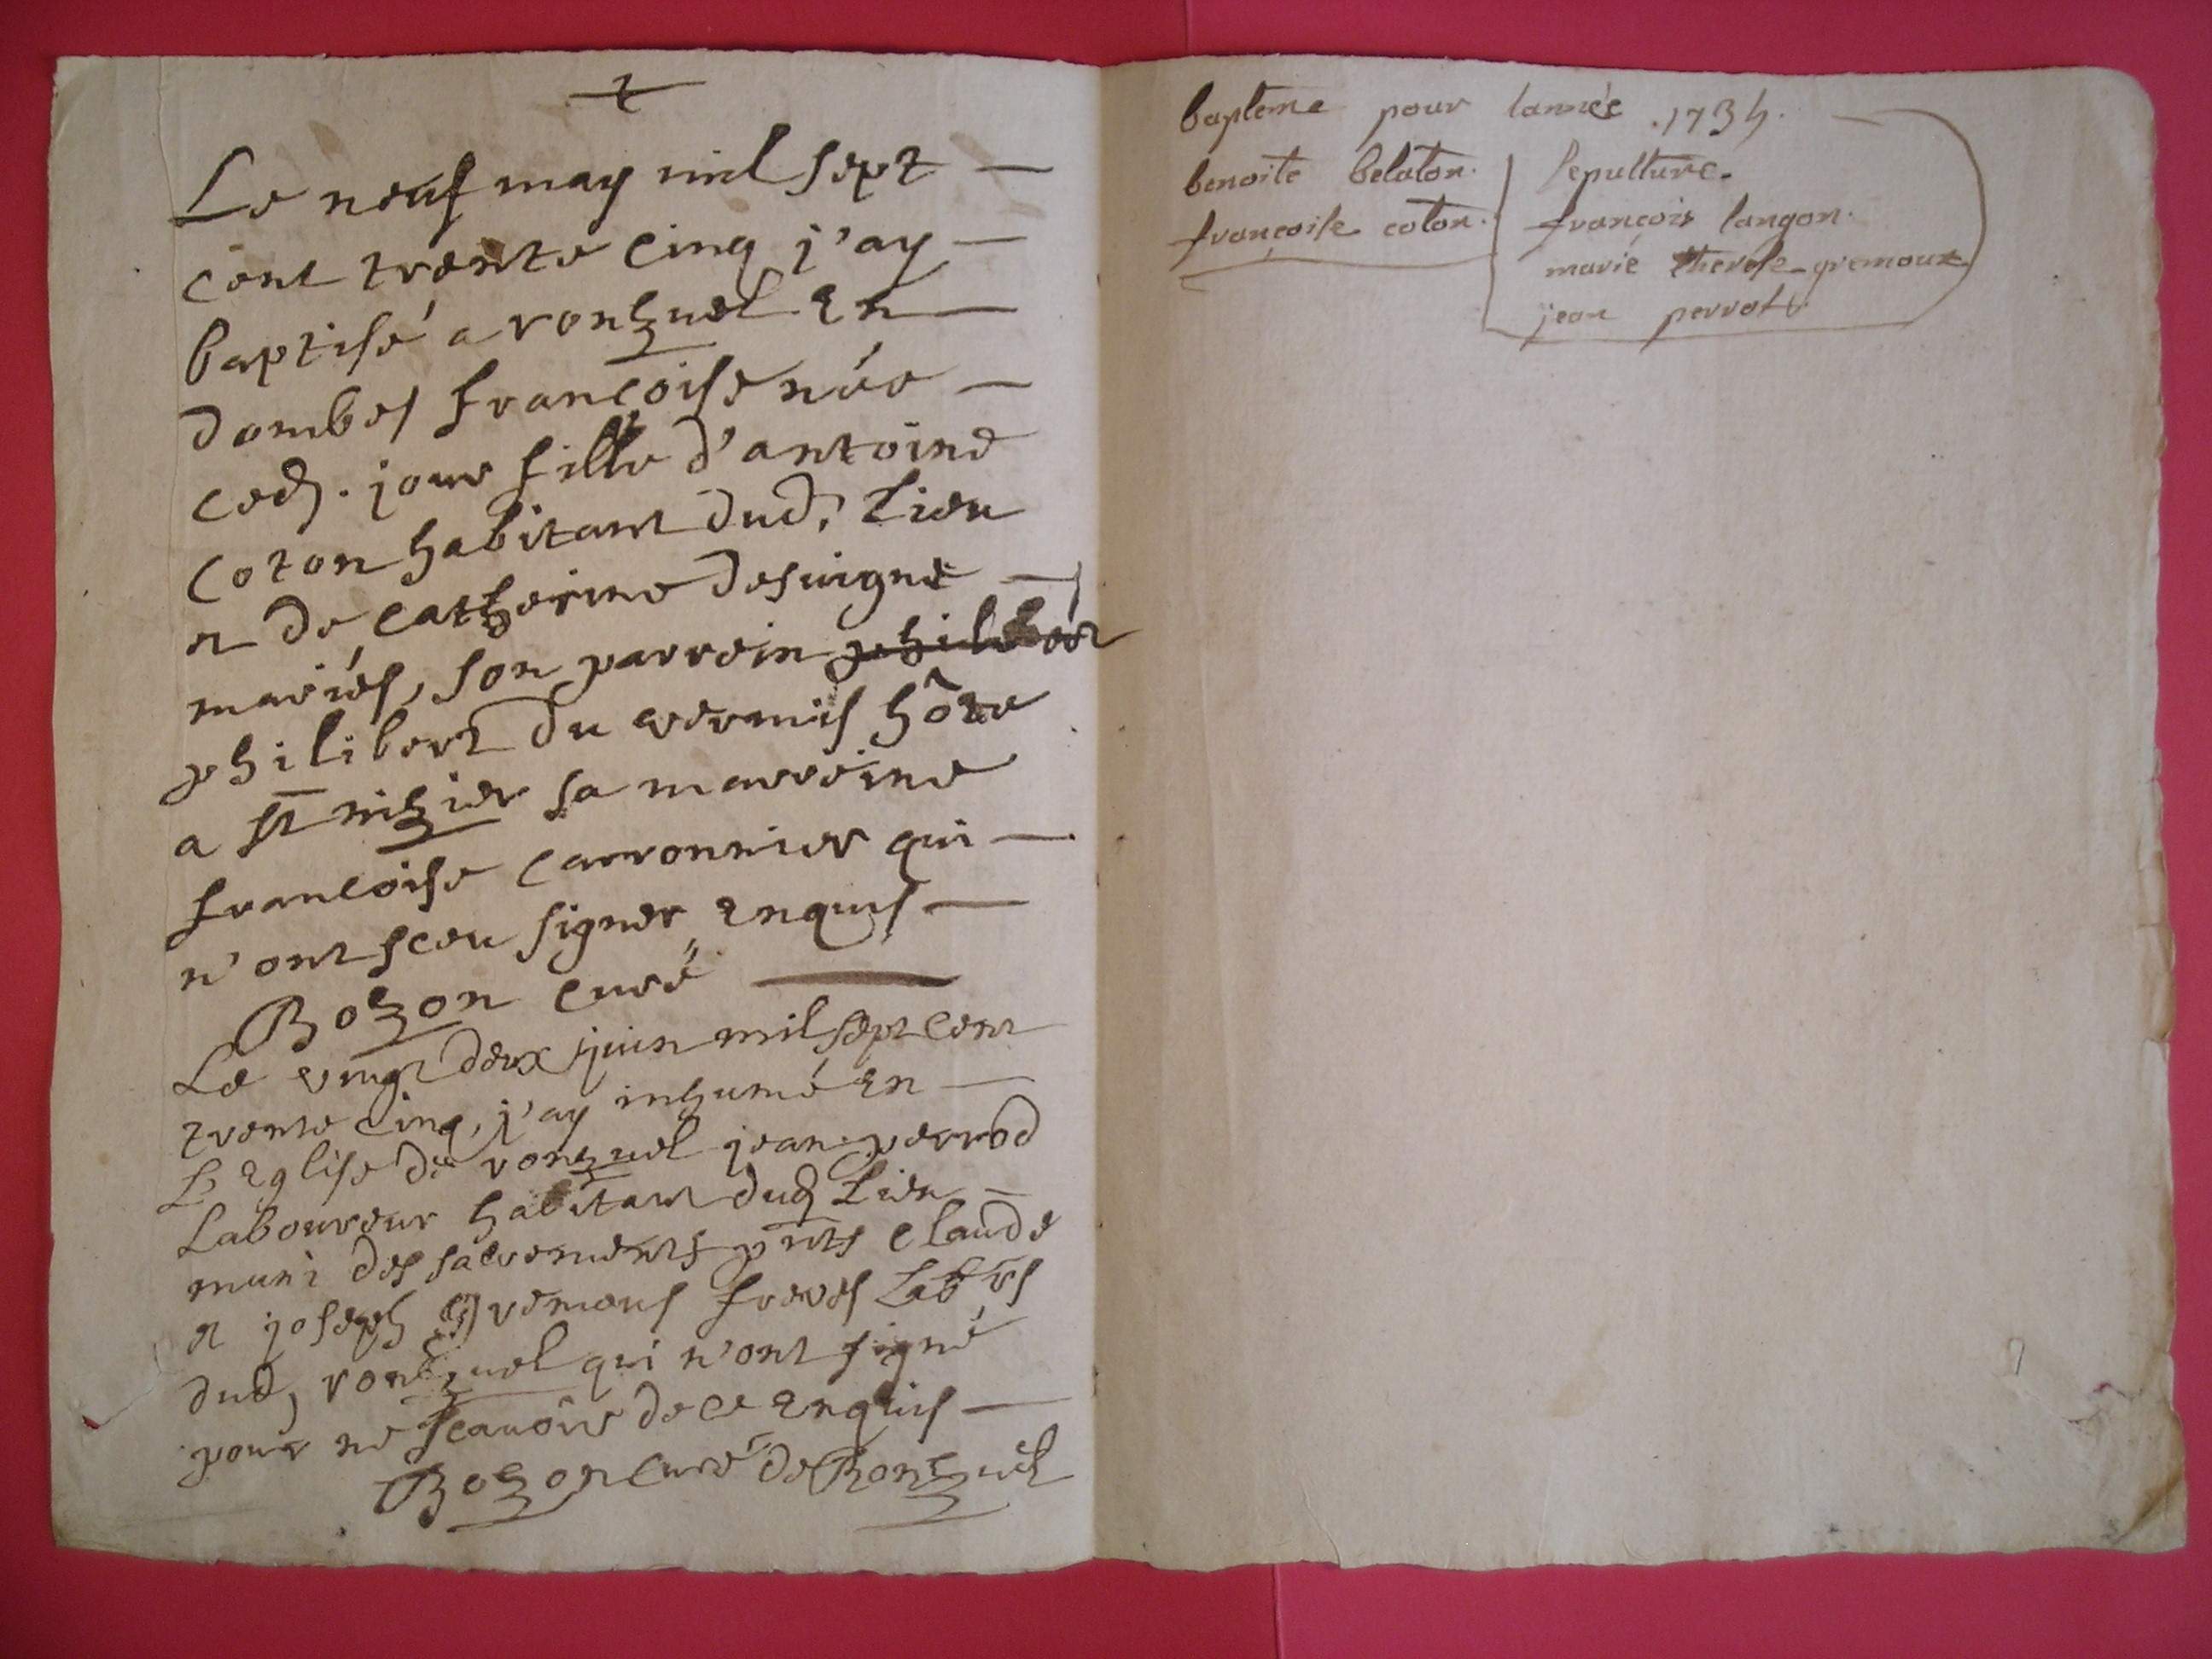 Le neuf may mil sept
cent trente cinq j'ay
baptisé a ronzuel en
dombes francoise née
ced. jour fille d'antoine
coton habitant dud. Lieu
et de catherine desuigne
mariés, son parrein philibert
philibert du vernis hôte
a st nizier sa marreine
francoise carronnier qui
n'ont sceu signer enquis
Bozon curé
Le vingt deux juin mil sept cent
trente cinq, j'ay inhumé en
L'Eglise de ronzuel jean perrod
Laboureur habitant dud Lieu
muni des sacrements pnts claude
et joseph Gremous freres Labrs
dud, ronzuel qui n'ont signé
pour ne scauoir de ce enquis
Bozon curé de Ronzuel
bapteme pour lannée .1734.
benoite belaton. sepulture.
francoise coton. françois langon.
marie therese gremoux
jean perrot